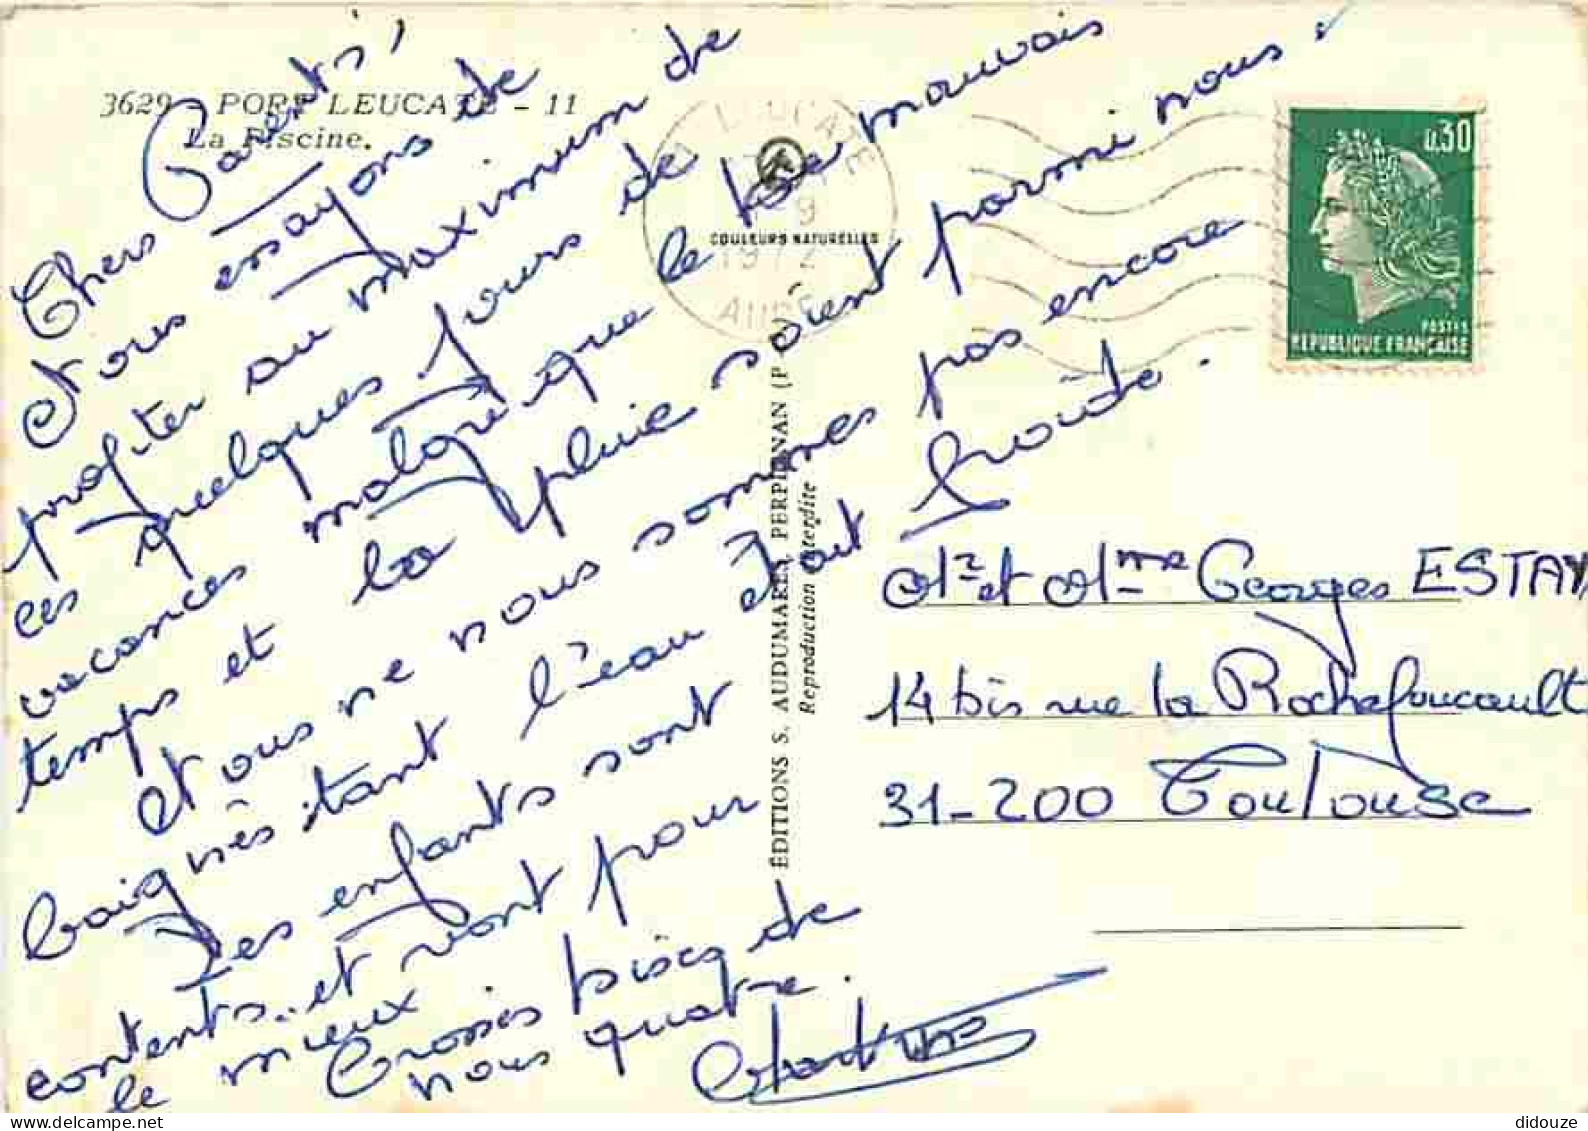 3629 - PORT LEUCATE - 11
La Piscine.
Chers Parents,
Nous essayons de
profiter au maximum de
ces quelques jours de
vacances malgré que le mauvais
temps et la pluie soient parmi nous.
Nous ne nous sommes pas encore
baignés étant l'eau froide.
Les enfants sont
contents.. et vont pour
le mieux.
Grosses bises de
nous quatre.
LEUCATE
9
1972
AUDE
COULEURS NATURELLES
0.30
POSTES
REPUBLIQUE FRANÇAISE
ÉDITIONS S. AUDUMARES, PERPIGNAN (P
Reproduction interdite
Mr et Mme Georges ESTAY
14 bis rue la Rochefoucault
31-200 Toulouse
didouze